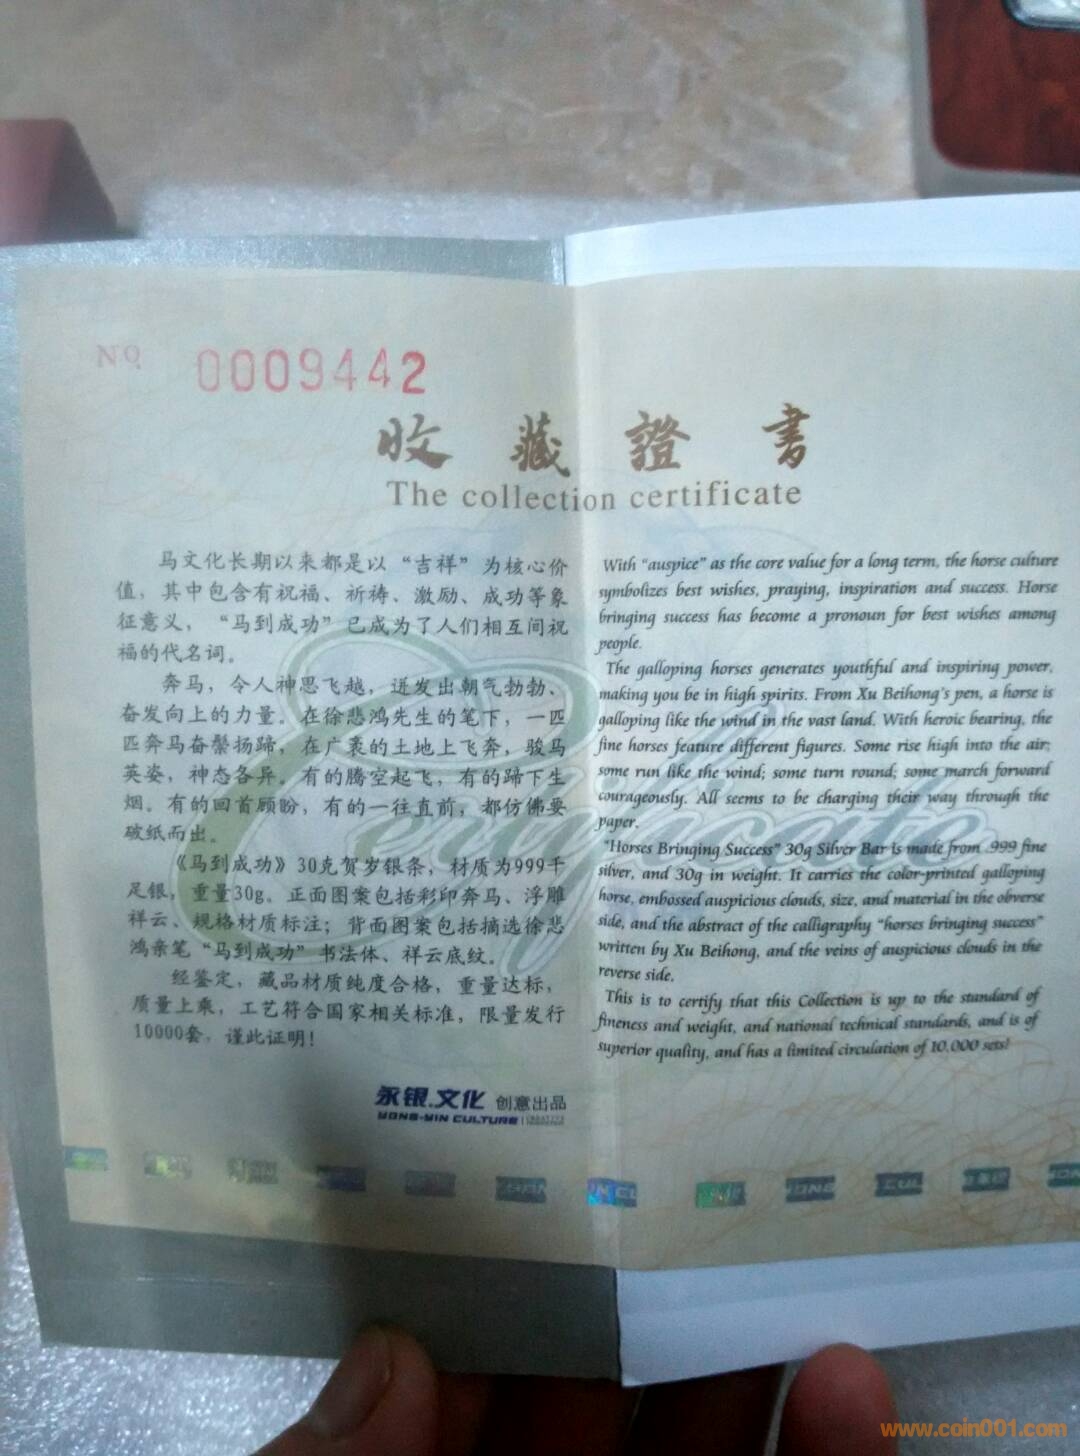 No. 0009442
收藏證書
The collection certificate
马文化长期以来都是以“吉祥”为核心价
值，其中包含有祝福、祈祷、激励、成功等象
征意义，“马到成功”已成为了人们相互间祝
福的代名词。
奔马，令人神思飞越，迸发出朝气勃勃、
奋发向上的力量。在徐悲鸿先生的笔下，一匹
匹奔马奋鬃扬蹄，在广袤的土地上飞奔，骏马
英姿，神态各异。有的腾空起飞，有的蹄下生
烟。有的回首顾盼，有的一往直前，都仿佛要
破纸而出。
《马到成功》30克贺岁银条，材质为999千
足银，重量30g。正面图案包括彩印奔马、浮雕
祥云、规格材质标注；背面图案包括摘选徐悲
鸿亲笔“马到成功”书法体、祥云底纹。
经鉴定，藏品材质纯度合格，重量达标，
质量上乘，工艺符合国家相关标准，限量发行
10000套，谨此证明！
永银.文化 创意出品
YONG-YIN CULTURE
With “auspice” as the core value for a long term, the horse culture
symbolizes best wishes, praying, inspiration and success. Horse
bringing success has become a pronoun for best wishes among
people.
The galloping horses generates youthful and inspiring power,
making you be in high spirits. From Xu Beihong's pen, a horse is
galloping like the wind in the vast land. With heroic bearing, the
fine horses feature different figures. Some rise high into the air;
some run like the wind; some turn round; some march forward
courageously. All seems to be charging their way through the
paper.
"Horses Bringing Success" 30g Silver Bar is made from .999 fine
silver, and 30g in weight. It carries the color-printed galloping
horse, embossed auspicious clouds, size, and material in the obverse
side, and the abstract of the calligraphy “horses bringing success”
written by Xu Beihong, and the veins of auspicious clouds in the
reverse side.
This is to certify that this Collection is up to the standard of
fineness and weight, and national technical standards, and is of
superior quality, and has a limited circulation of 10,000 sets!
Certificate
www.coin001.com